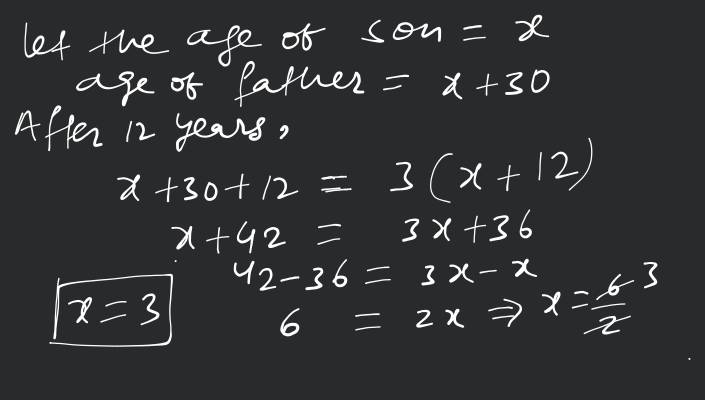 let the age of son = x
age of father = x+30
After 12 years,
x+30+12 = 3(x+12)
x+42 = 3x+36
42-36 = 3x-x
6 = 2x ⇒ x = 6/2 3
x=3